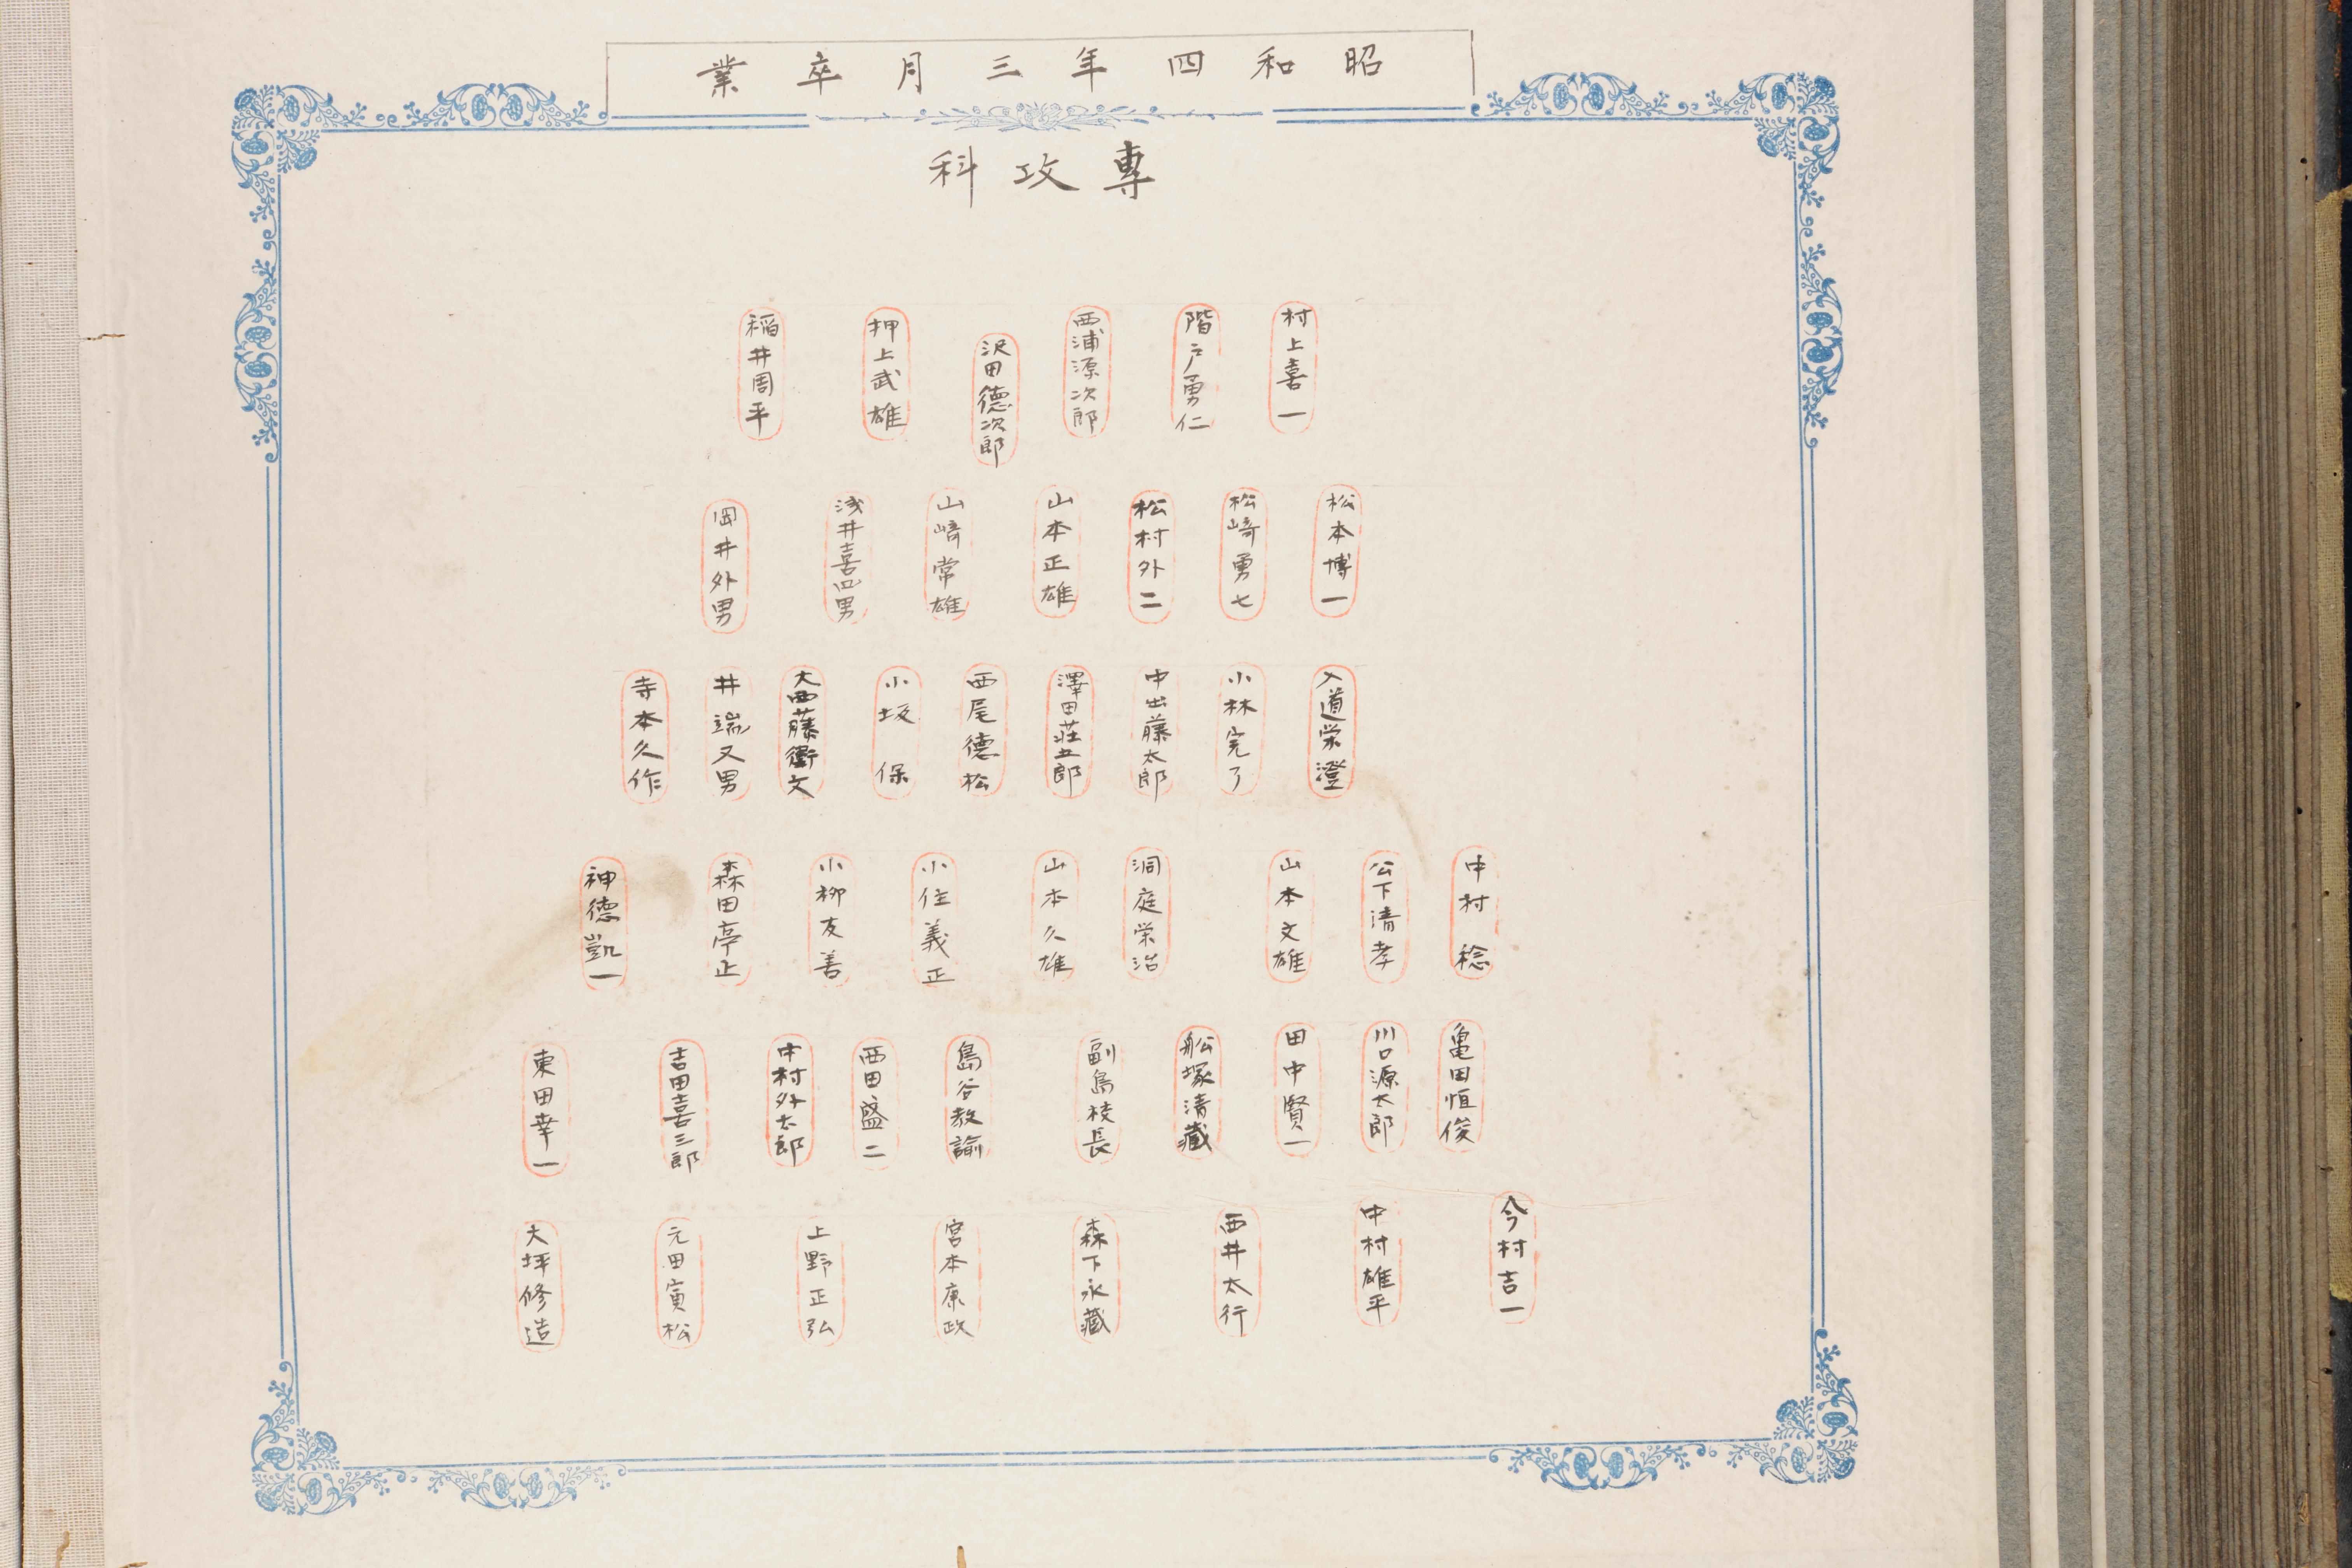 昭和四年三月卒業
専攻科
村上喜一
階戸勇仁
西浦源次郎
沢田德次郎
押上武雄
稲井周平
松本博一
松崎勇七
松村外二
山本正雄
山崎常雄
浅井喜四男
岡井外男
入道栄澄
小林完了
中出藤太郎
澤田荘五郎
西尾德松
小坂保
大西藤衛文
井端又男
寺本久作
中村稔
公下清孝
山本文雄
洞庭栄治
山本久雄
小住義正
小柳友善
森田亭止
神德凱一
亀田恒俊
川口源太郎
田中賢一
舩塚清藏
副島校長
島谷教諭
西田盛二
中村外太郎
吉田喜三郎
東田幸一
今村吉一
中村雄平
西井太行
森下永藏
宮本康政
上野正弘
元田寅松
大坪修造